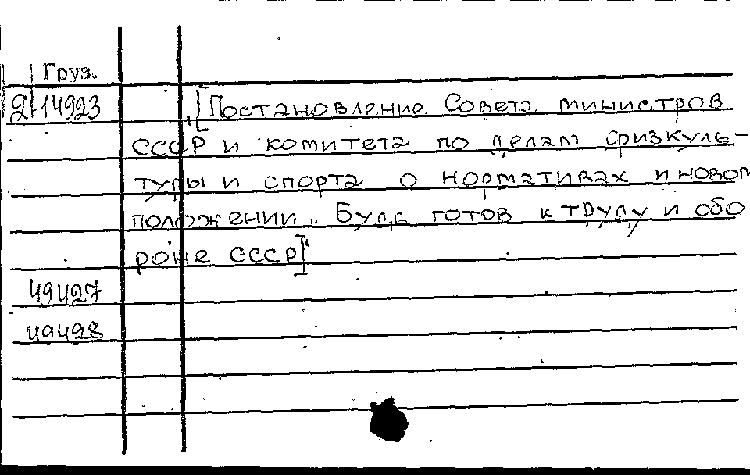 Груз.
2/14923 [Постановление Совета министров
СССР и комитета по делам физкуль-
туры и спорта о нормативах и новом
положении „Будь готов к труду и обо
роне СССР]"
49427
49428